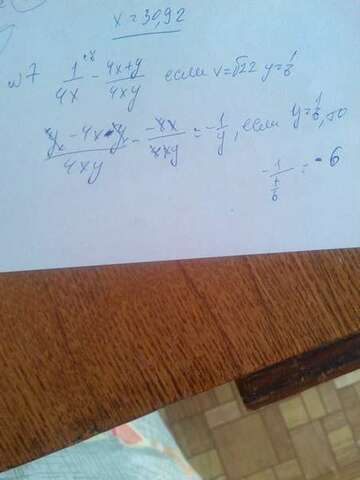 x = 30,92
№7 1/4x - 4x+y/4xy если x=√22 y=1/6
y - 4x - y/4xy = -4x/4xy = -1/y, если y=1/6, то
-1/(1/6) = -6